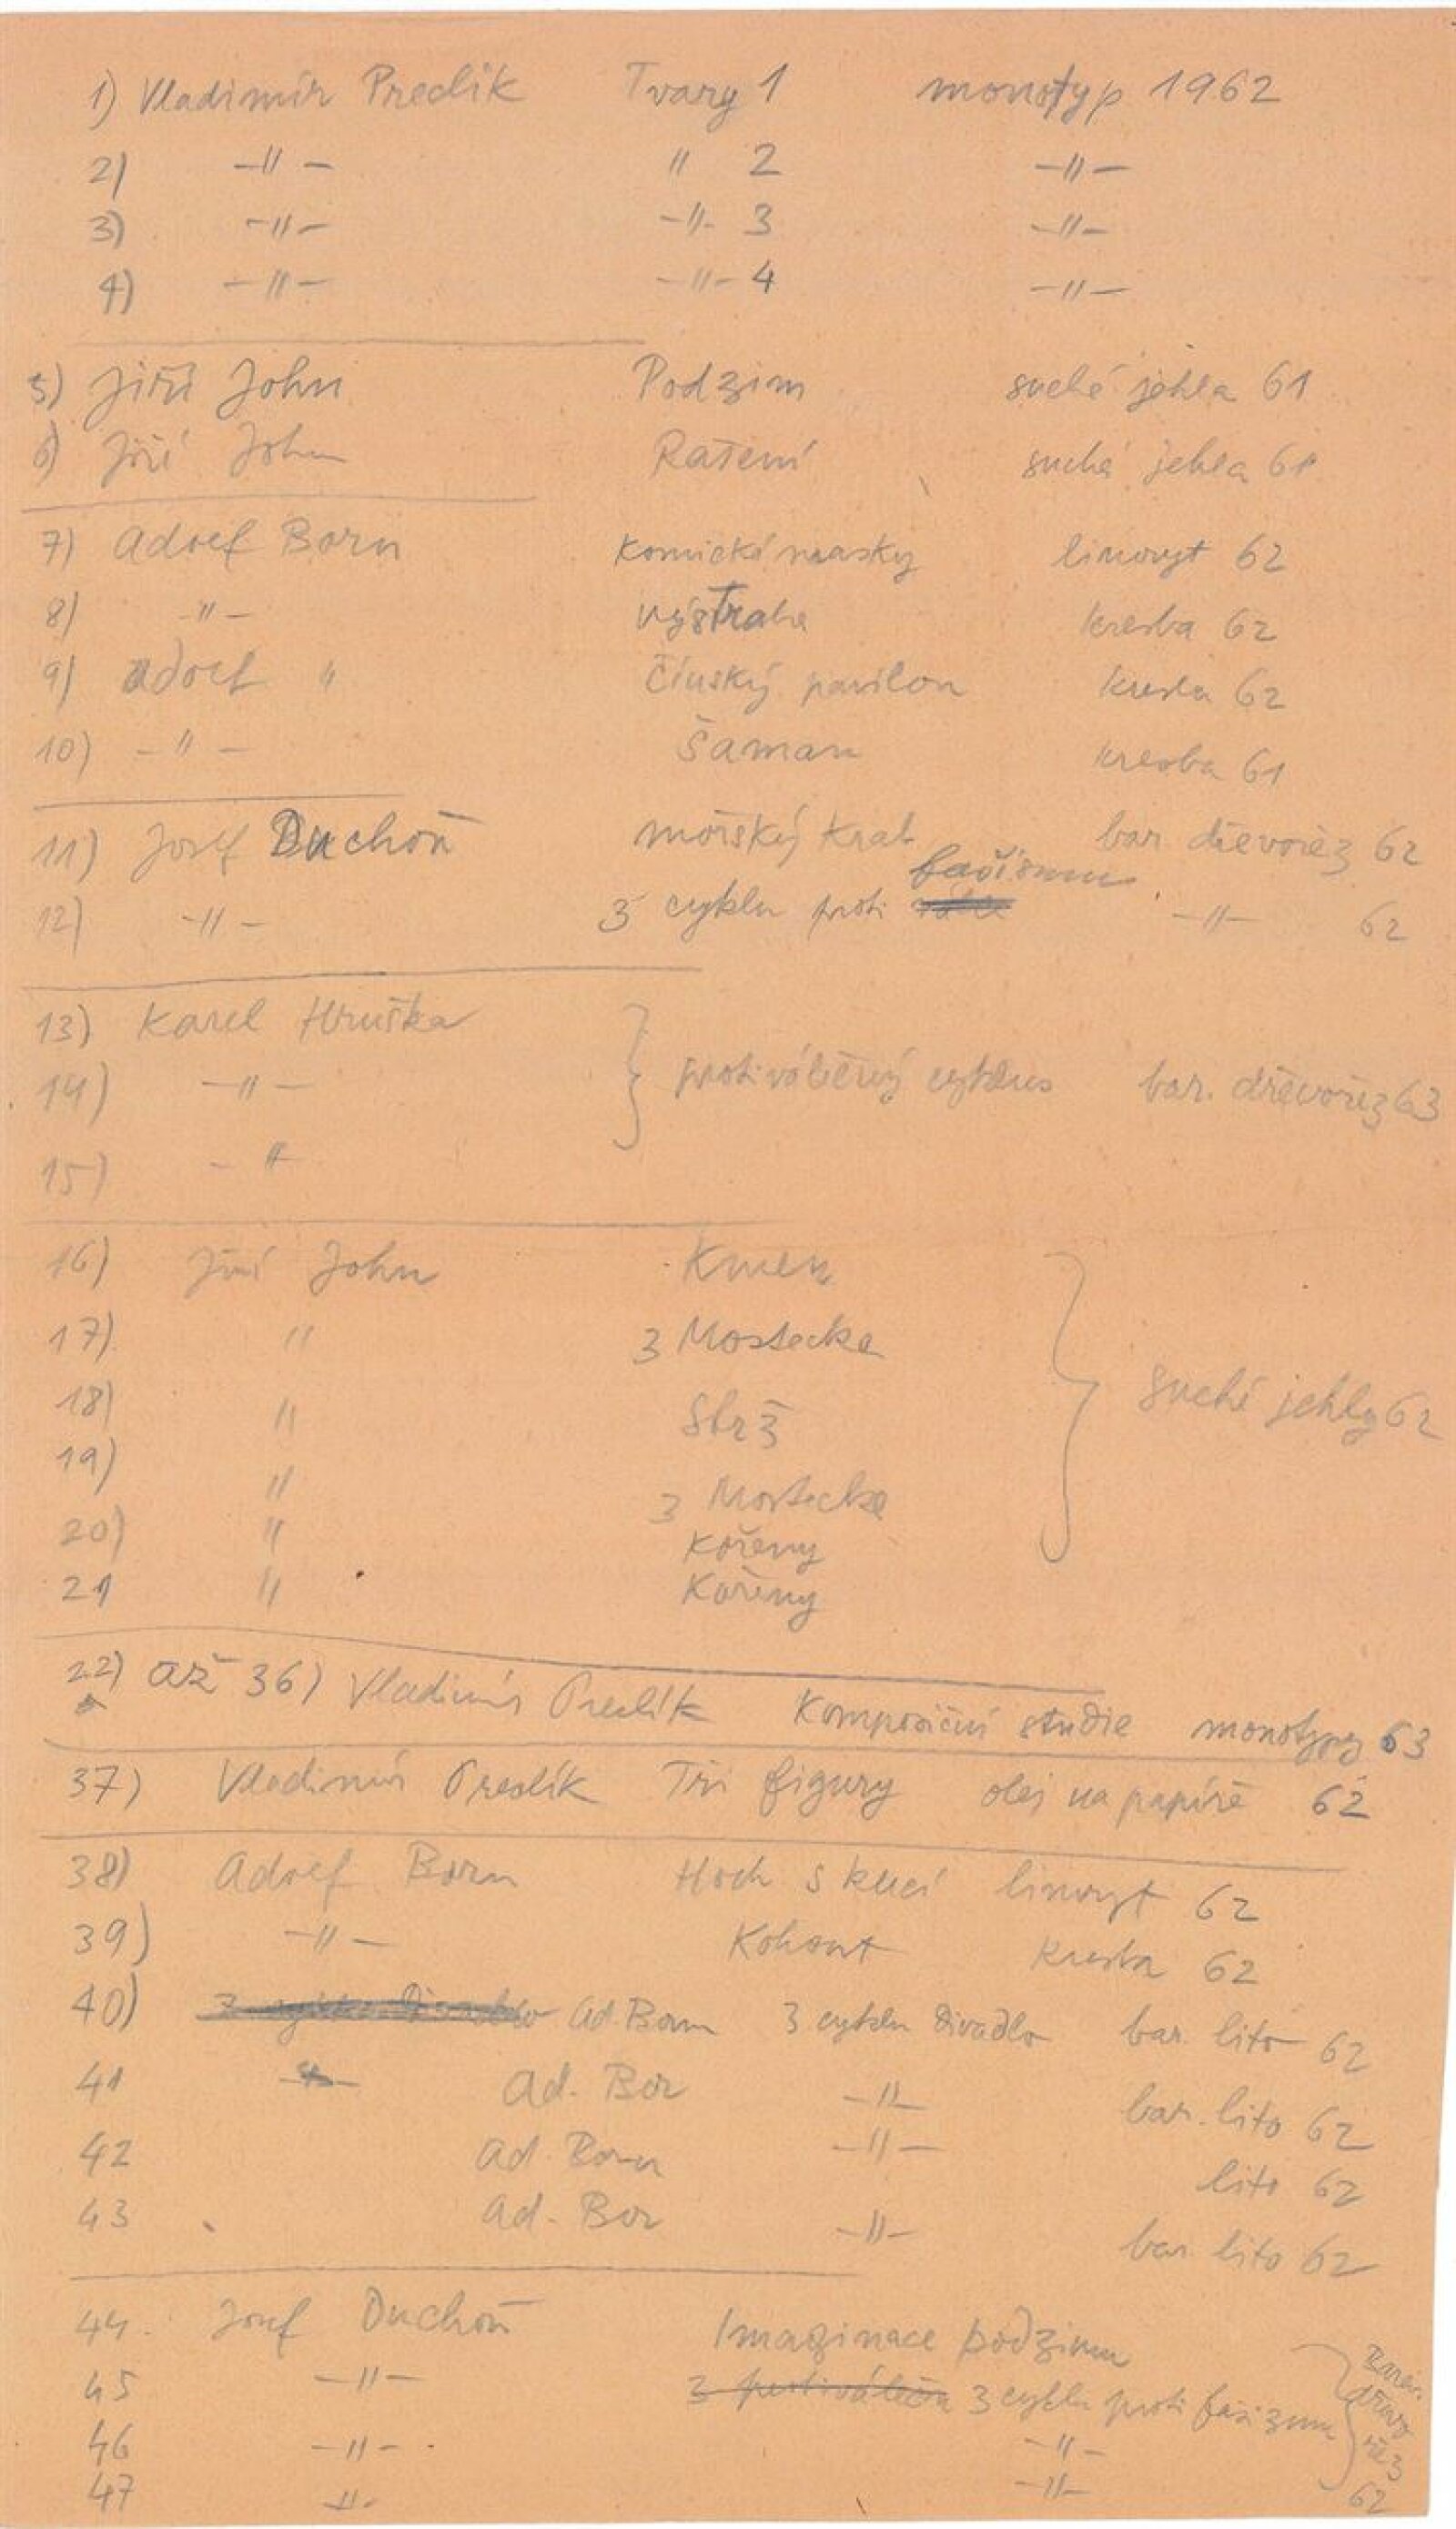 1) Vladimír Preclík Tvary 1 monotyp 1962
2) -"- " 2 -"-
3) -"- -"- 3 -"-
4) -"- -"- 4 -"-
5) Jiří John Podzim suchá jehla 61
6) Jiří John Rašení suchá jehla 61
7) Adolf Born Komické masky linoryt 62
8) -"- výstraha kresba 62
9) Adolf " Čínský pavilon kresba 62
10) -"- Šaman kresba 61
11) Josef Duchoň mořský krab bar. dřevořez 62
fašismu
12) -"- z cyklu proti -"- 62
13) Karel Hruška
14) -"- protiválečný cyklus bar. dřevořez 63
15) -"-
16) Jiří John Kmen
17) " z Mostecka
18) " Strž suché jehly 62
19) " z Mostecka
20) " Kořeny
21 " Kořeny
22) až 36) Vladimír Preclík Kompoziční studie monotypy 63
37) Vladimír Preclík Tři figury olej na papíře 62
38) Adolf Born Hoch s klecí linoryt 62
39) -"- Kohout Kresba 62
40) z cyklu Divadlo Ad. Born z cyklu Divadlo bar. lito 62
41 -"- Ad. Bor -"- bar. lito 62
42 Ad. Born -"- lito 62
43 Ad. Bor -"- bar. lito 62
44. Josef Duchoň Imaginace podzimu
45 -"- z protiválečn z cyklu proti fašizmu
46 -"- -"-
47 -"- -"-
Barev.
dřevo
řez
62